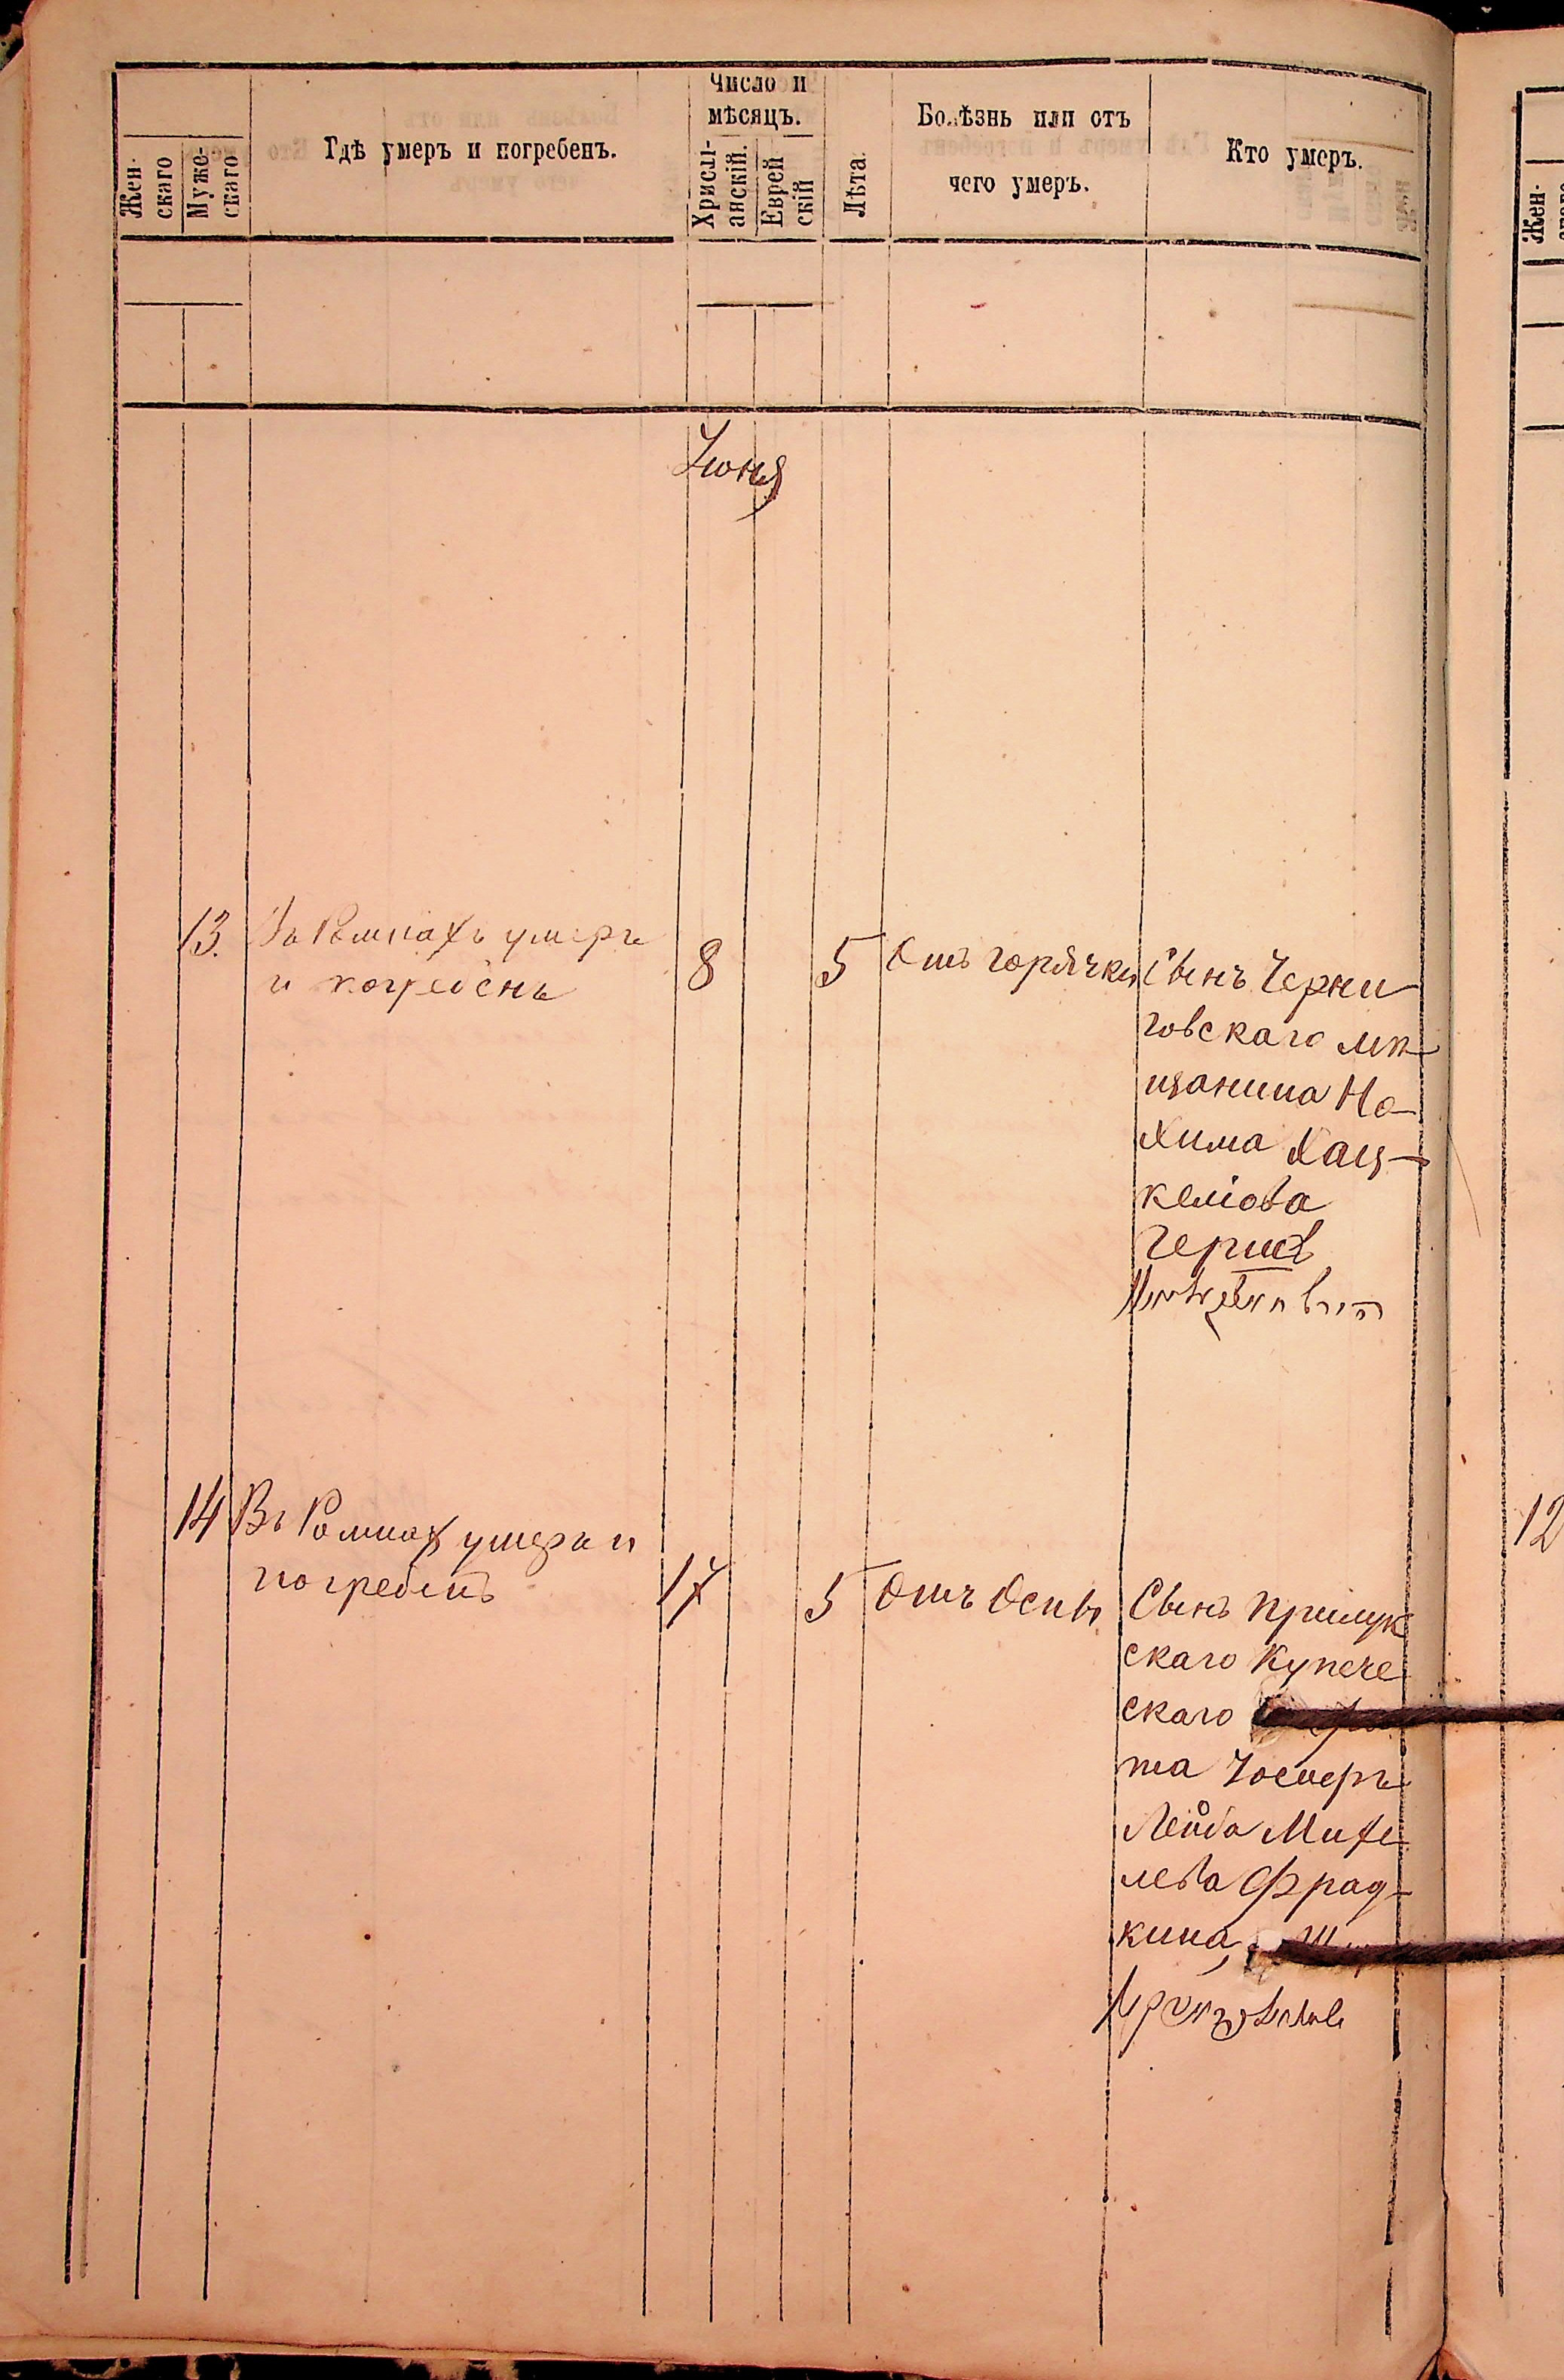 Жен-
скаго
Муже-
скаго
Гдѣ умеръ и погребенъ.
Число и
мѣсяцъ.
Христі-
анскій.
Еврей
скій
Лѣта.
Болѣзнь или отъ
чего умеръ.
Кто умеръ.
Жен-
Іюня
13.
Въ Ромнахъ умеръ
и погребенъ
8
5
Отъ горячки
Сынъ Черни
говскаго мѣ-
щанина На-
хима Хац-
келіова
14
Въ Ромнах умеръ и
погребенъ
17
5
Отъ Оспы
Сынъ Прилук
скаго Купече
скаго
та
Лейба Михе
лева Фрад-
кина
12